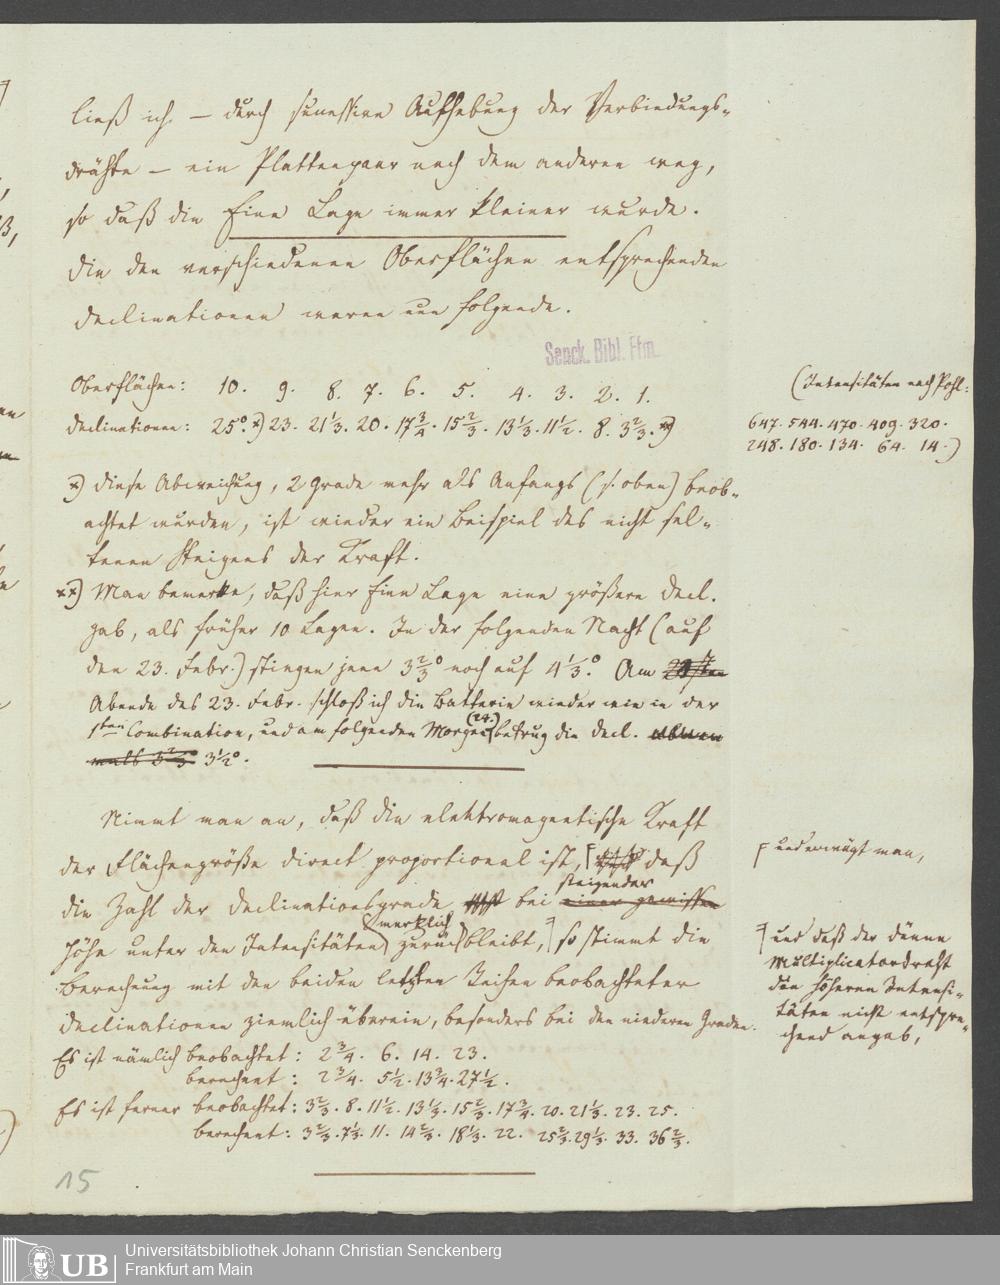 ließ ich, – durch successive Aufhebung der Verbindungs-
drähte – ein Plattenpaar nach dem anderen weg,
so daß die Eine Lage immer kleiner wurde.
Die den verschiedenen Oberflächen entsprechenden
Declinationen waren nun folgende.
Senck. Bibl. Ffm.
Oberflächen: 10. 9. 8. 7. 6. 5. 4. 3. 2. 1.
Declinationen: 25°.x) 23. 21 1/3. 20. 17 3/4. 15 2/3. 13 1/3. 11 1/2. 8. 3 2/3.xx)
(Intensitäten nach Pohl:
647. 544. 470. 409. 320.
248. 180. 134. 64. 14.)
x) Diese Abweichung, 2 Grade mehr als Anfangs (s. oben) beob-
achtet wurden, ist wieder ein Beispiel des nicht sel-
tenen Steigens der Kraft.
xx) Man bemerke, daß hier Eine Lage eine größere Decl.
gab, als früher 10 Lagen. In der folgenden Nacht (auf
den 23. Febr.) stiegen jene 3 2/3° noch auf 4 1/3°. Am
Abende des 23. Febr. schloß ich die Batterie wieder wie in der
1sten Combination, und am folgenden Morgen (24.) betrug die Decl.
3 1/2°.
Nimmt man an, daß die elektromagnetische Kraft
der Flächengröße direct proportional ist, daß
und erwägt man,
die Zahl der Declinationsgrade bei steigender
Höhe unter den Intensitäten (merklich) zurückbleibt, so stimmt die
und daß der dünne
Multiplicatordraht
die höheren Intensi-
täten nicht entspre-
chend angab,
Berechnung mit den beiden letzten Reihen beobachteter
Declinationen ziemlich überein, besonders bei den niederen Graden.
Es ist nämlich beobachtet: 2 3/4. 6. 14. 23.
berechnet: 2 3/4. 5 1/2. 13 3/4. 27 1/2.
Es ist ferner beobachtet: 3 2/3. 8. 11 1/2. 13 1/3. 15 2/3. 17 3/4. 20. 21 1/3. 23. 25.
berechnet: 3 2/3. 7 1/3. 11. 14 2/3. 18 1/3. 22. 25 2/3. 29 1/3. 33. 36 2/3.
15
UB
Universitätsbibliothek Johann Christian Senckenberg
Frankfurt am Main